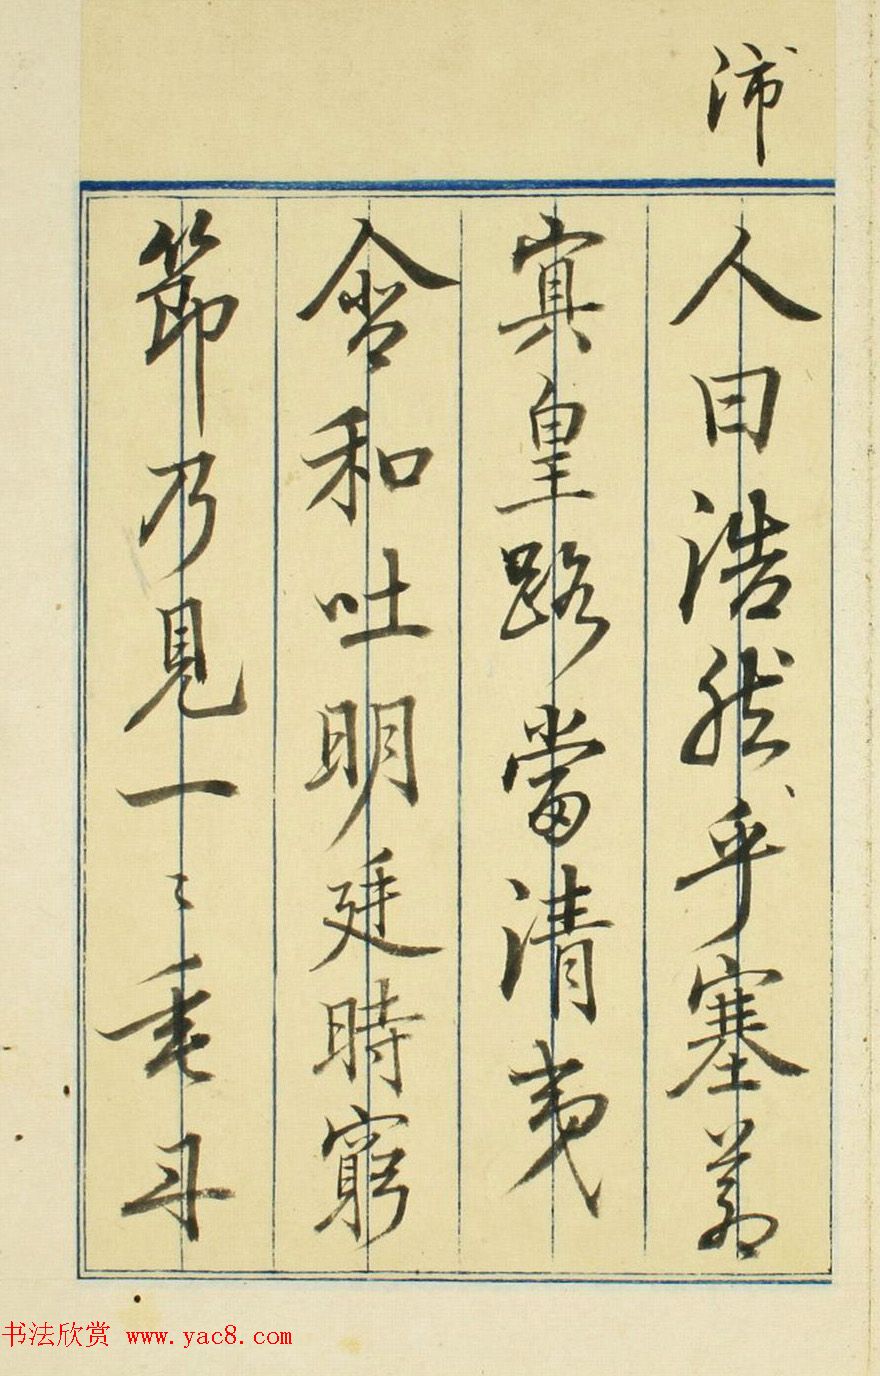 沛
人曰浩然乎塞蒼
冥皇路當清夷
含和吐明廷時窮
節乃見一〻垂丹
书法欣赏 www.yac8.com